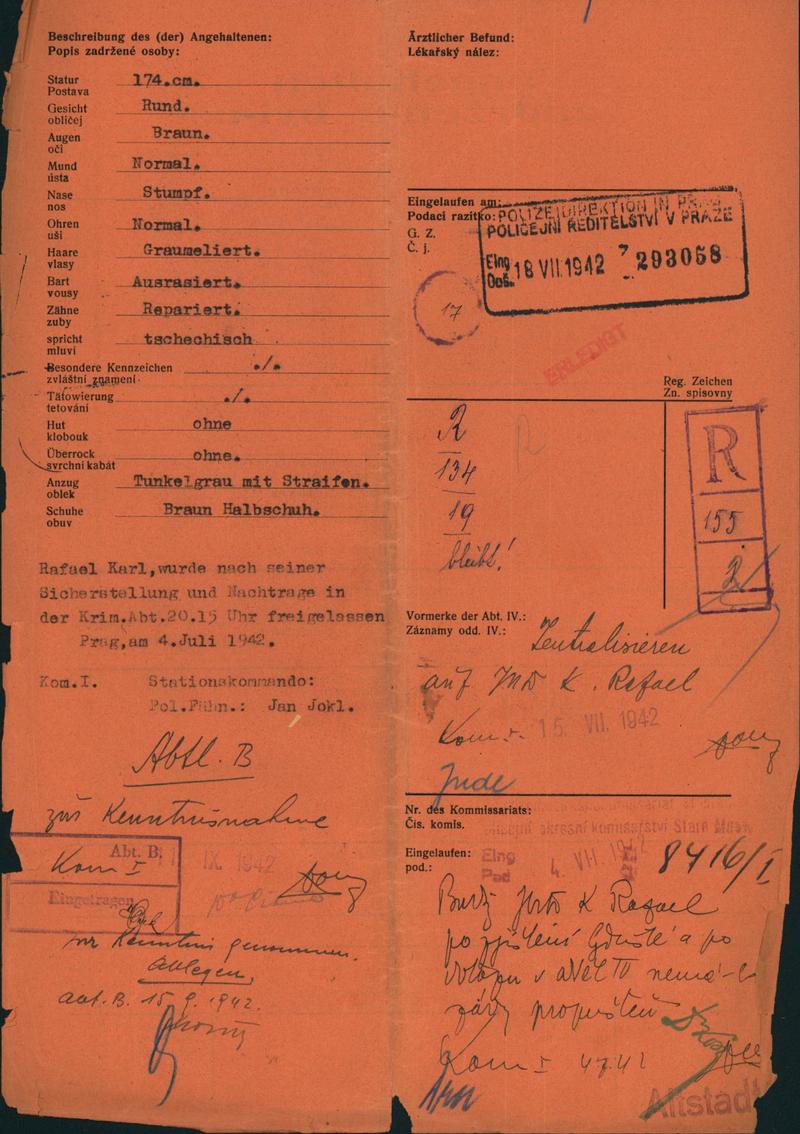 Beschreibung des (der) Angehaltenen:
Popis zadržené osoby:
Statur 174.cm.
Postava
Gesicht Rund.
obličej
Augen Braun.
oči
Mund Normal.
ústa
Nase Stumpf.
nos
Ohren Normal.
uši
Haare Graumeliert.
vlasy
Bart Ausrasiert.
vousy
Zähne Repariert.
zuby
spricht tschechisch
mluví
Besondere Kennzeichen ./.
zvláštní znamení
Tätowierung ./.
tetování
Hut ohne
klobouk
Überrock ohne.
svrchní kabát
Anzug Tunkelgrau mit Straifen.
oblek
Schuhe Braun Halbschuh.
obuv
Rafael Karl,wurde nach seiner
Sicherstellung und Nachtrage in
der Krim.Abt.20.15 Uhr freigelassen
Prag,am 4.Juli 1942.
Kom.I. Stationskommando:
Pol.Fähn.: Jan Jokl.
Abtl. B
zur Kenntnisnahme
Kom I
Abt. B.
IX. 1942
Eingetragen
zur Kenntnis genommen.
Ablegen,
Abt. B. 15. 9. 1942.
Ärztlicher Befund:
Lékařský nález:
Eingelaufen am:
Podací razítko:
G. Z.
Č. j.
POLIZEIDIREKTION IN PRAG
POLICEJNÍ ŘEDITELSTVÍ V PRAZE
Eing
Doš.
18 VII.1942
293058
17
ERLEDIGT
Reg. Zeichen
Zn. spisovny
R
134
19
bleibt!
R
R
155
2
Vormerke der Abt. IV.:
Záznamy odd. IV.:
Zentralisieren
auf K. Rafael
Kom I. 15. VII. 1942
Jude
Nr. des Kommissariats:
Čís. komis.
okresní komisařství Staré Město
Eingelaufen:
pod.:
Eing
Pod
4. VII. 1942
8416/I
K Rafael
po zjištění a po
v IV
propuštěn
Kom I 4.7.42
Altstadt